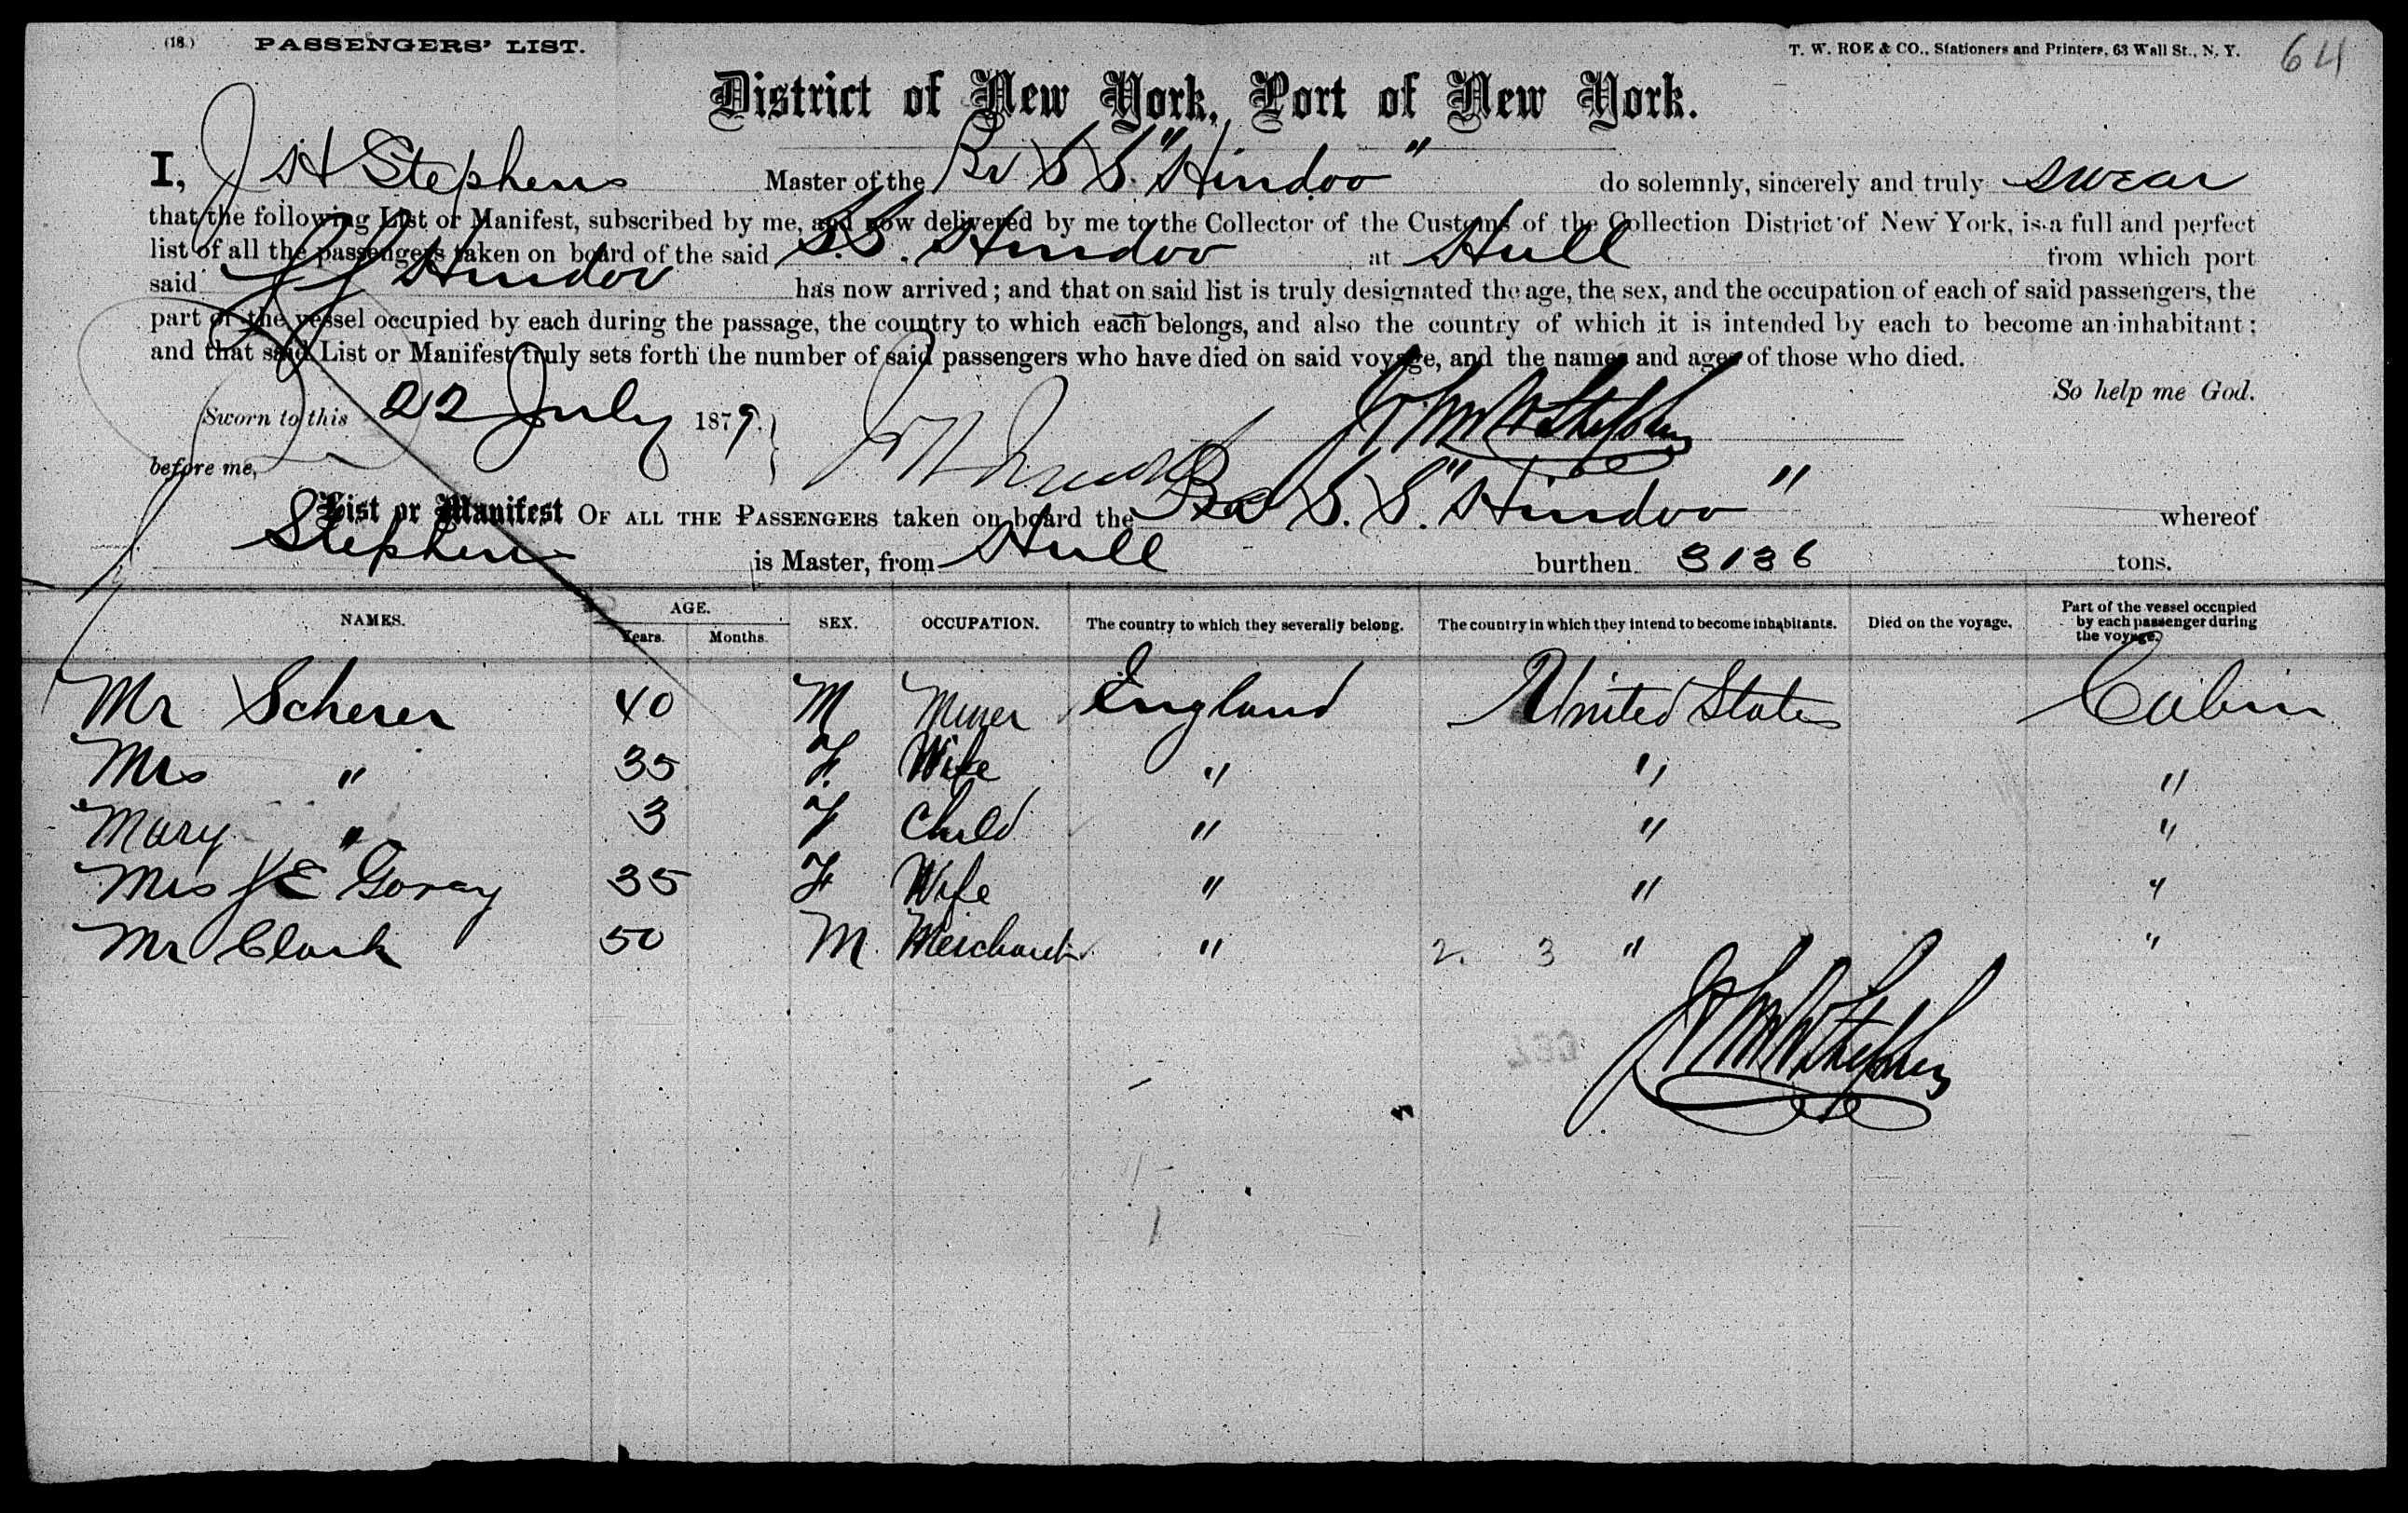 (18.) PASSENGERS' LIST. T. W. ROE & CO., Stationers and Printers, 63 Wall St., N. Y. 64
District of New York, Port of New York.
I, J H Stephens Master of the Br S S. "Hindoo" do solemnly, sincerely and truly swear
that the following List or Manifest, subscribed by me, and now delivered by me to the Collector of the Customs of the Collection District of New York, is a full and perfect
list of all the passengers taken on board of the said S.S. Hindoo at Hull from which port
said Hindoo has now arrived; and that on said list is truly designated the age, the sex, and the occupation of each of said passengers, the
part of the vessel occupied by each during the passage, the country to which each belongs, and also the country of which it is intended by each to become an inhabitant;
and that said List or Manifest truly sets forth the number of said passengers who have died on said voyage, and the names and ages of those who died.
So help me God.
Sworn to this 22 July 1879.
before me,
List or Manifest OF ALL THE PASSENGERS taken on board the S. S. "Hindoo" whereof
Stephens is Master, from Hull burthen 3136 tons.
NAMES. AGE. Years. Months. SEX. OCCUPATION. The country to which they severally belong. The country in which they intend to become inhabitants. Died on the voyage. Part of the vessel occupied by each passenger during the voyage.
Mr Scherer 40 M Miner England United States Cabin
Mrs " 35 F. Wife " " "
Mary " 3 F Child " " "
Mrs E 35 F Wife " " "
Mr Clark 50 M Merchant " 2. 3 " "